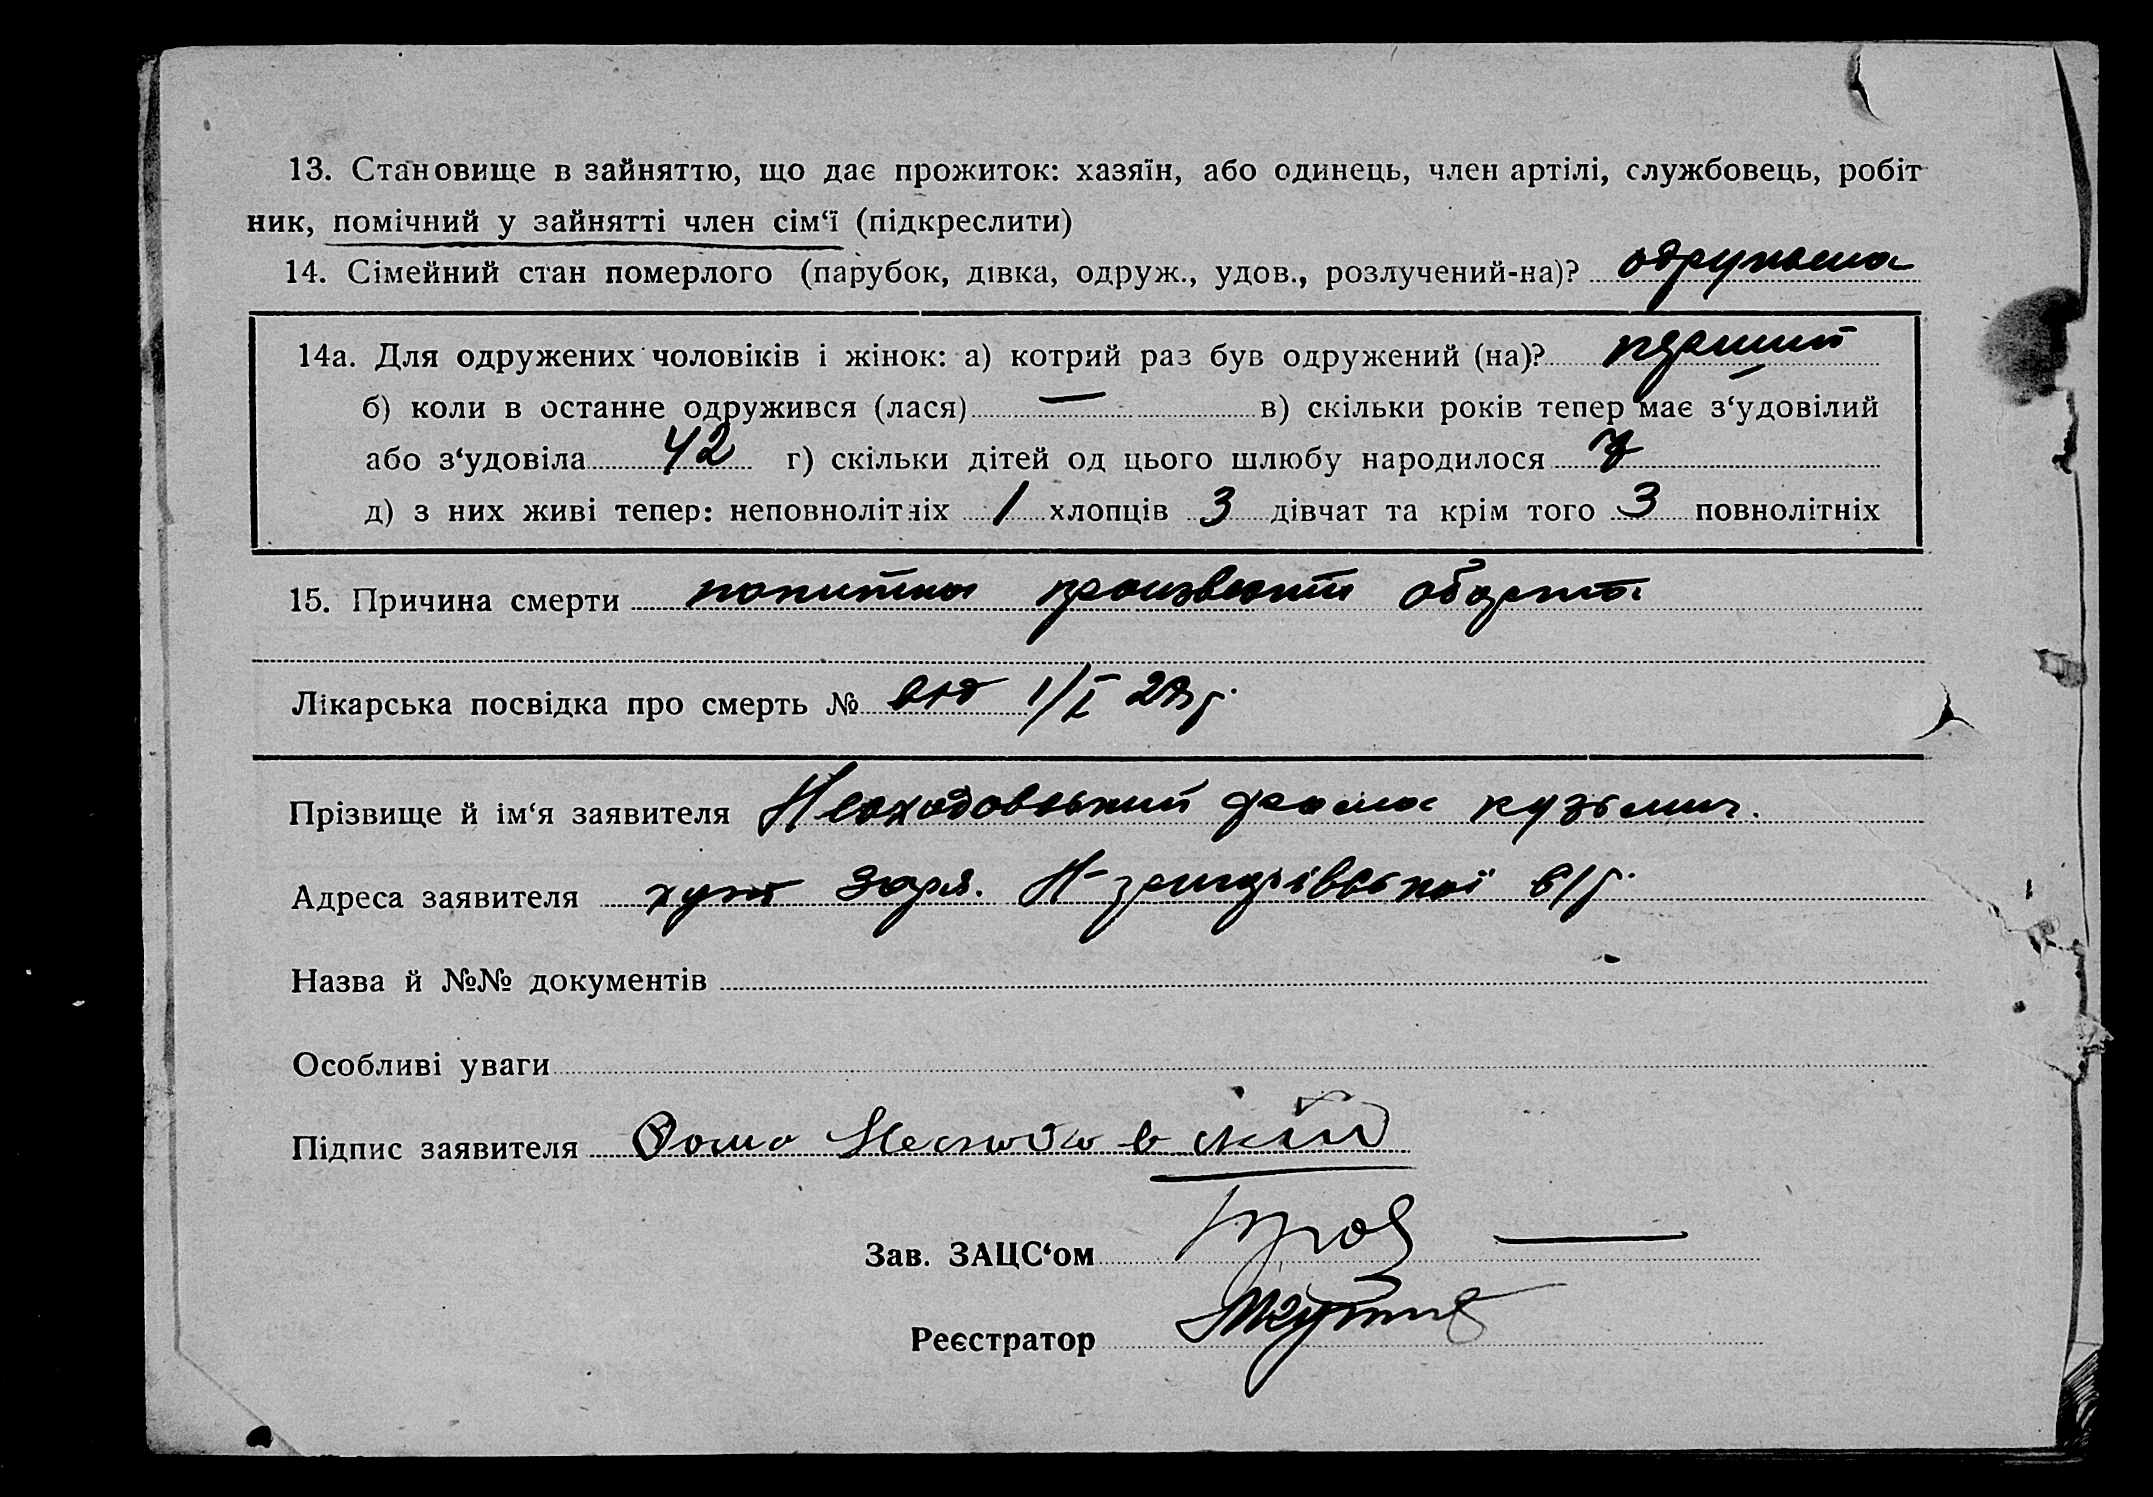 13. Становище в зайняттю, що дає прожиток: хазяїн, або одинець, член артілі, службовець, робіт
ник, помічний у зайнятті член сім‘ї (підкреслити)
14. Сімейний стан померлого (парубок, дівка, одруж., удов., розлучений-на)? одружена
14а. Для одружених чоловіків і жінок: а) котрий раз був одружений (на)? перший
б) коли в останне одружився (лася) — в) скільки років тепер має з‘удовілий
або з‘удовіла 42 г) скільки дітей од цього шлюбу народилося 7
д) з них живі тепер: неповнолітніх 1 хлопців 3 дівчат та крім того 3 повнолітніх
15. Причина смерти попитка произвести аборт
Лікарська посвідка про смерть № від 1/I
Прізвище й ім‘я заявителя Кузьмич.
Адреса заявителя хут Заря.
Назва й №№ документів
Особливі уваги
Підпис заявителя Фома
Зав. ЗАЦС‘ом
Реєстратор